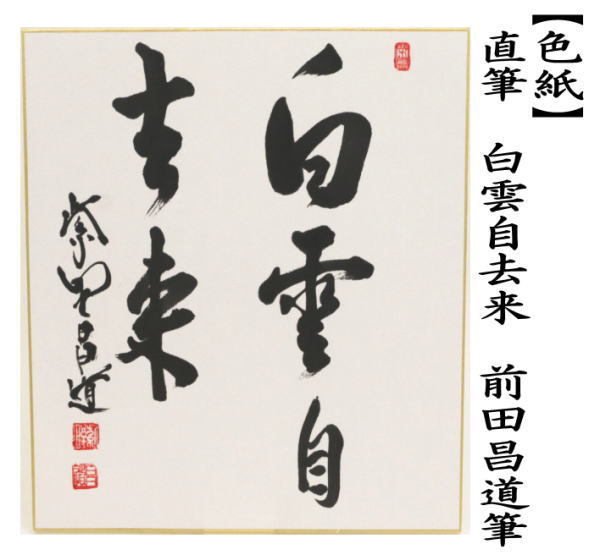 【色紙】
直筆 白雲自去来 前田昌道筆
白雲自
去来
紫野昌道